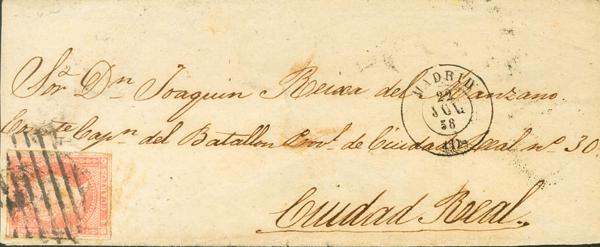 Sor Dn Joaquin Reixa del Manzano
Comte Capn del Batallon Provl de Ciudad Real nº 30
Ciudad Real.
MADRID
22
JUL.
58
4 CUARTOS